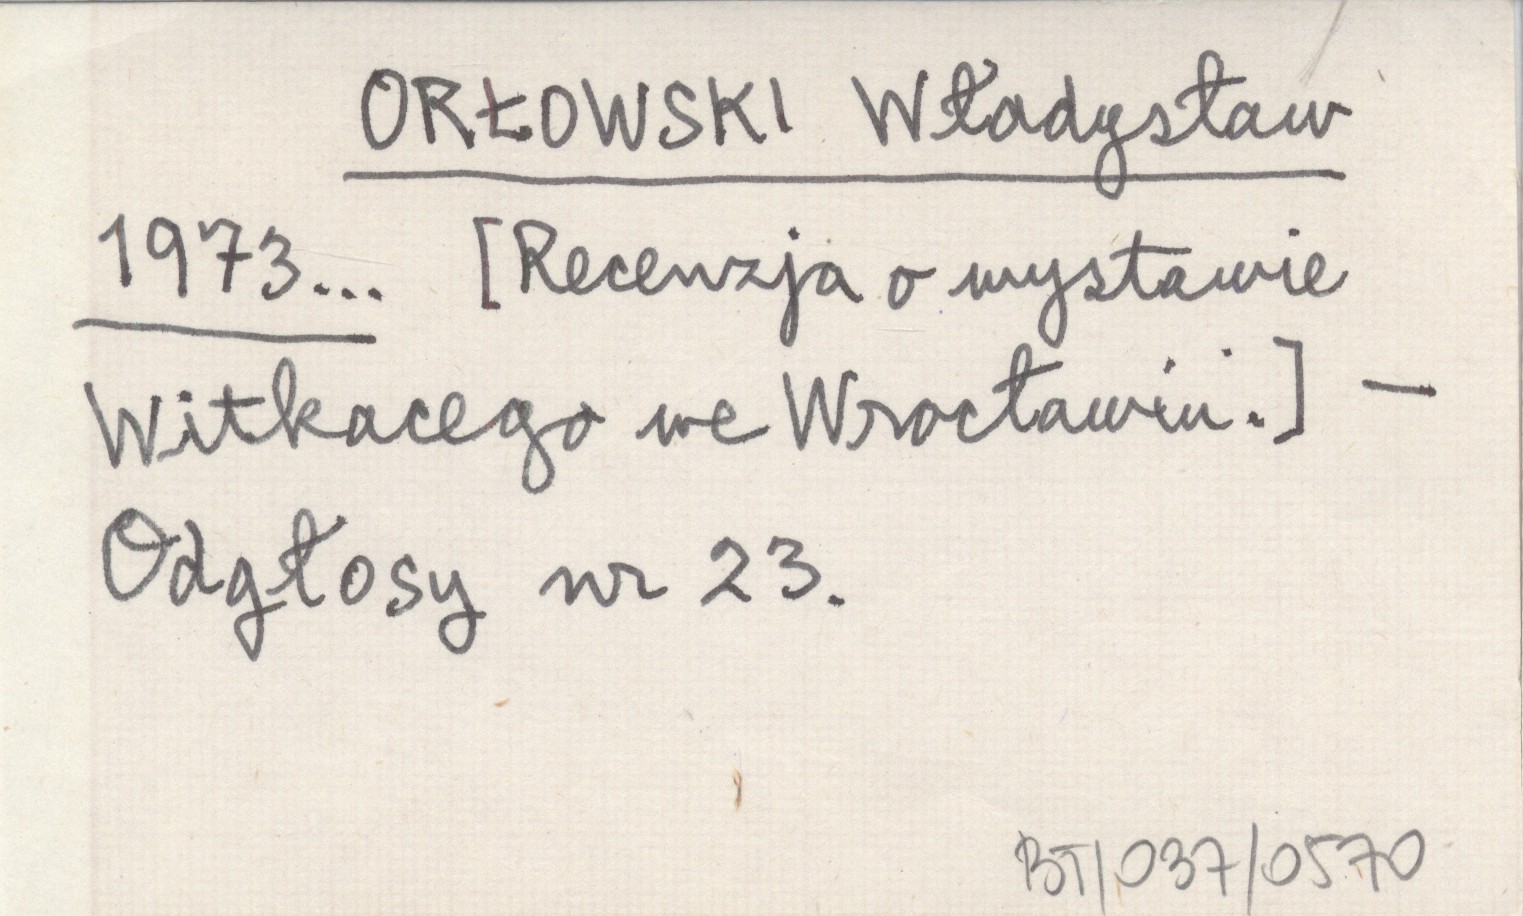 ORŁOWSKI Władysław
1973... [Recenzja o wystawie
Witkacego we Wrocławiu.] —
Odgłosy nr 23.
BT/037/0570